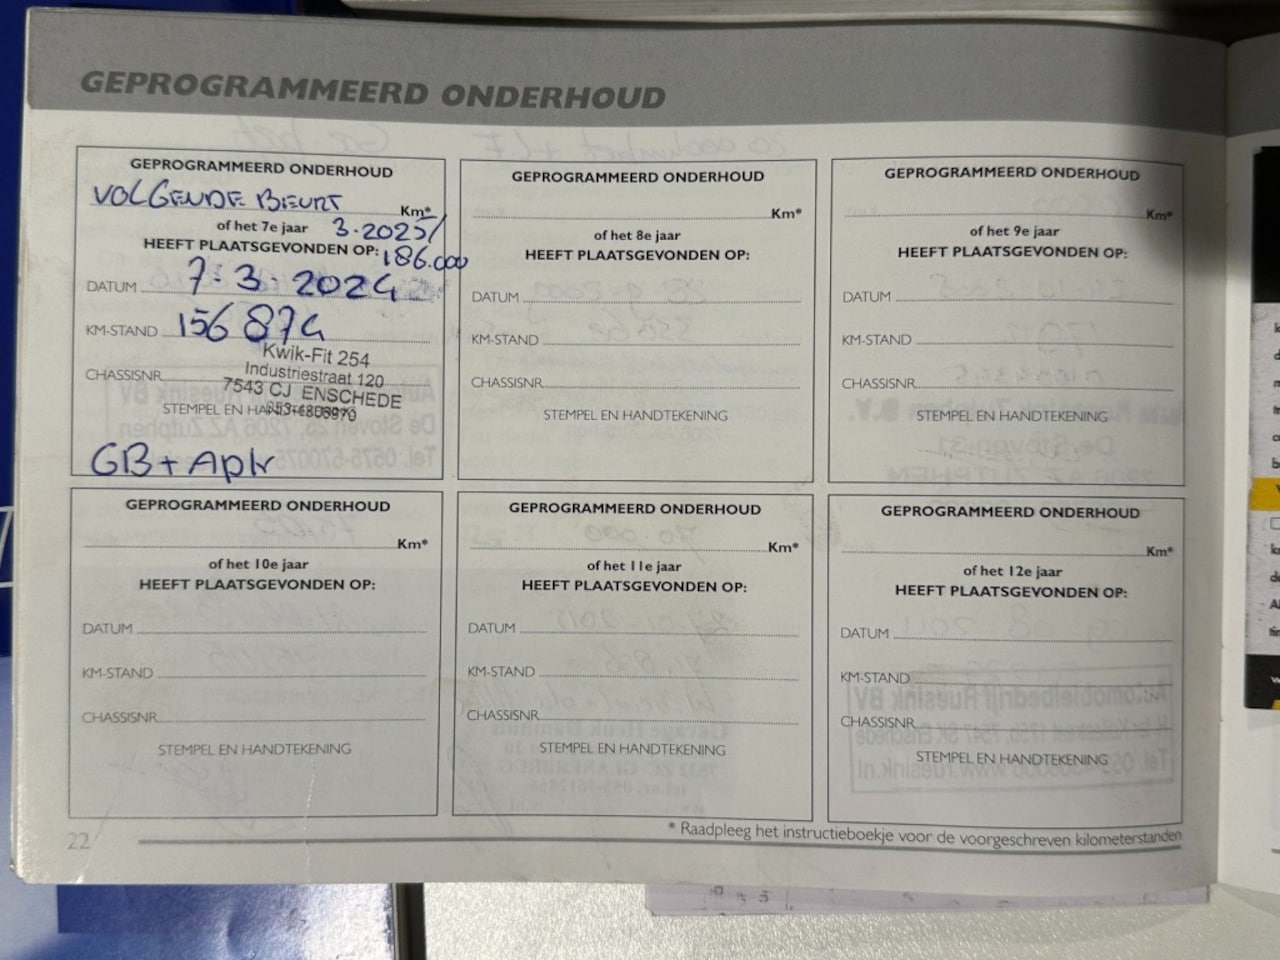 GEPROGRAMMEERD ONDERHOUD
GEPROGRAMMEERD ONDERHOUD
VOLGENDE BEURT Km*
of het 7e jaar 3.2025/
HEEFT PLAATSGEVONDEN OP: 186.000
DATUM 7.3.2024
KM-STAND 156 874
Kwik-Fit 254
Industriestraat 120
CHASSISNR.
7543 CJ ENSCHEDE
STEMPEL EN HANDTEKENING
GB + Apk
GEPROGRAMMEERD ONDERHOUD
Km*
of het 8e jaar
HEEFT PLAATSGEVONDEN OP:
DATUM
KM-STAND
CHASSISNR.
STEMPEL EN HANDTEKENING
GEPROGRAMMEERD ONDERHOUD
Km*
of het 9e jaar
HEEFT PLAATSGEVONDEN OP:
DATUM
KM-STAND
CHASSISNR.
STEMPEL EN HANDTEKENING
GEPROGRAMMEERD ONDERHOUD
Km*
of het 10e jaar
HEEFT PLAATSGEVONDEN OP:
DATUM
KM-STAND
CHASSISNR.
STEMPEL EN HANDTEKENING
GEPROGRAMMEERD ONDERHOUD
Km*
of het 11e jaar
HEEFT PLAATSGEVONDEN OP:
DATUM
KM-STAND
CHASSISNR.
STEMPEL EN HANDTEKENING
GEPROGRAMMEERD ONDERHOUD
Km*
of het 12e jaar
HEEFT PLAATSGEVONDEN OP:
DATUM
KM-STAND
CHASSISNR.
STEMPEL EN HANDTEKENING
22
* Raadpleeg het instructieboekje voor de voorgeschreven kilometerstanden